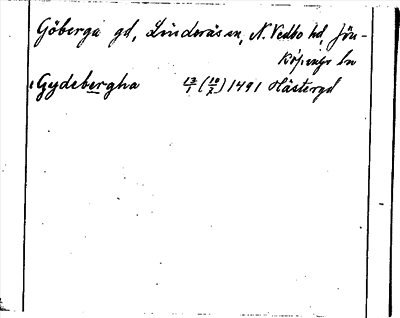 Göberga gd, Linderås sn, N. Vedbo hd, Jön-
köpings ln
Gydebergha 13/1 (10/2) 1491 Hästergd